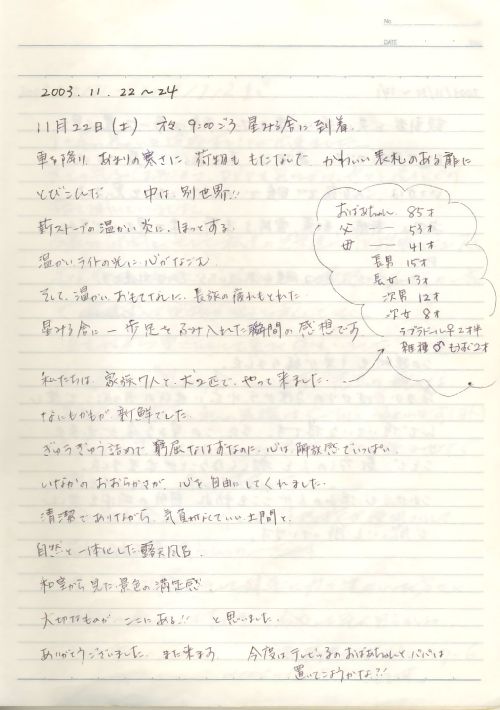 No.
DATE
2003.11.22〜24
11月22日(土) 夜9:00ごろ 星みる舎に到着。
車を降り、あまりの寒さに 荷物も もたないで かわいい表札のある館に
とびこんだ 中は別世界!!
薪ストーブの温かい炎に、ほっとする。
温かいライトの光に 心がなごむ
そして、温かいおもてなしに、長旅の疲れもとれた
星みる舎に一歩足をふみ入れた瞬間の感想です
おばあちゃん 85才
父 —— 53才
母 —— 41才
長男 15才
長女 13才
次男 12才
次女 8才
ラブラドール♀2才半
雑種♂ 2才
私たちは、家族7人と、犬2匹で、やって来ました。
なにもかもが新鮮でした。
ぎゅうぎゅう詰めで窮屈なはずなのに、心は解放感でいっぱい。
いなかのおおらかさが、心を自由にしてくれました。
清潔でありながら、気負わなくていい土間と、
自然と一体化した露天風呂、
和室から見た景色の満足感、
大切なものが ここにある!! と思いました。
ありがとうございました。また来ます。 今度は、テレビっ子のおばあちゃんとパパは
置いてこようかな?!